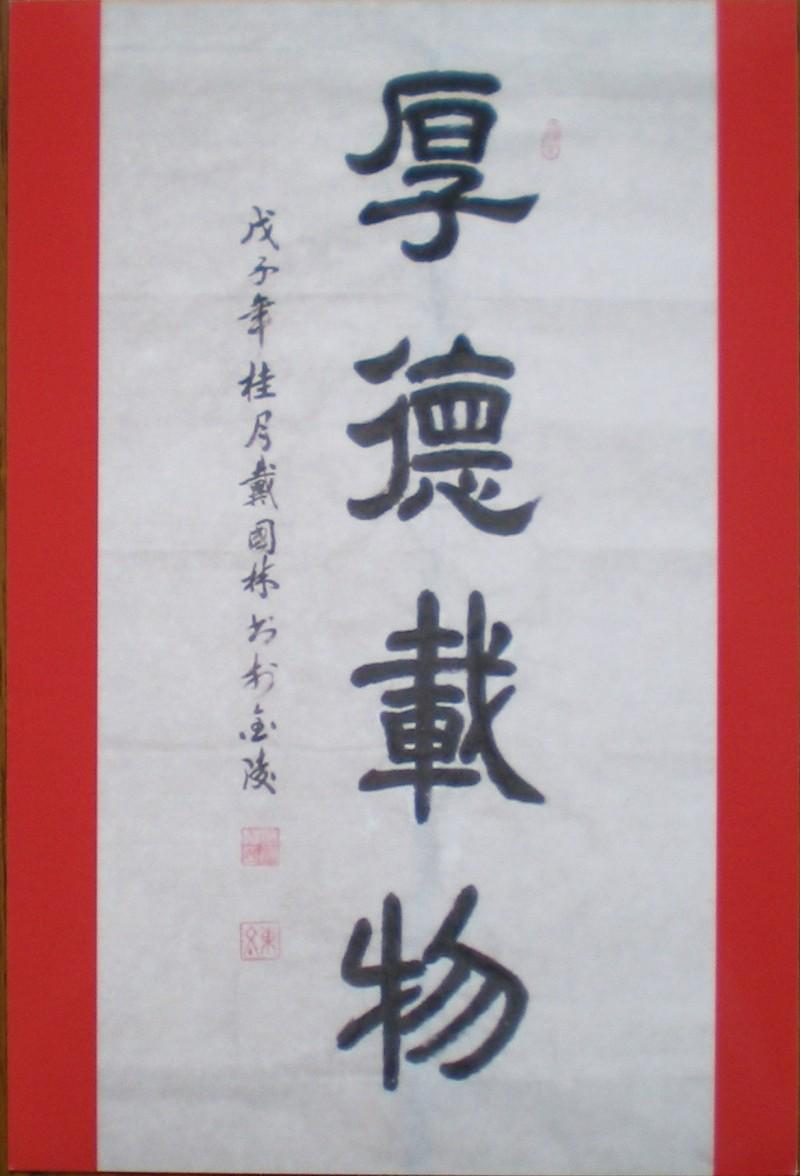 厚德載物
戊子年桂月戴國棟书于金陵